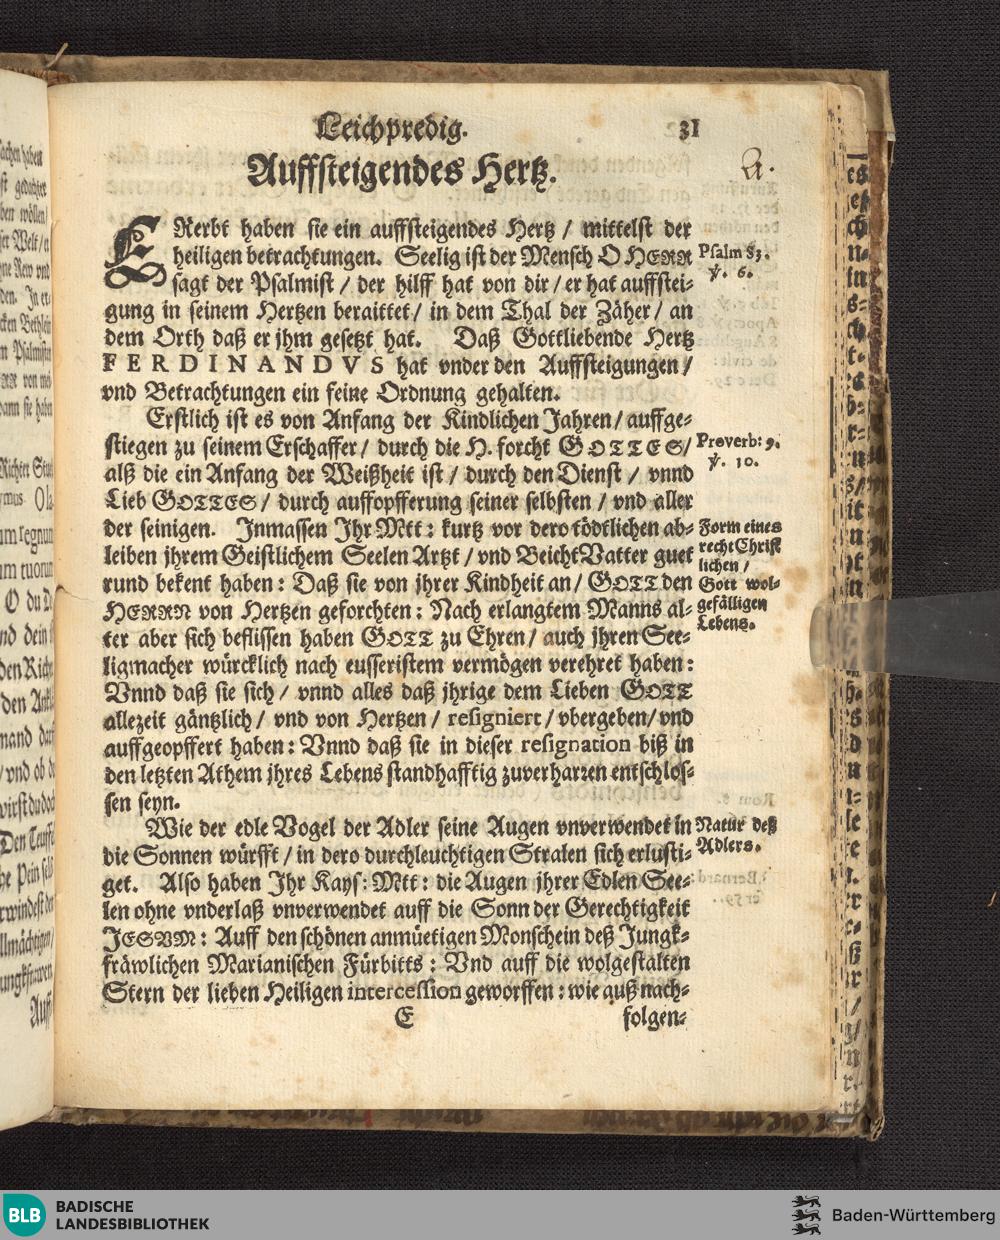 Leichpredig. 31
Auffsteigendes Hertz.
ERerbt haben sie ein auffsteigendes Hertz / mittelst der
heiligen betrachtungen. Seelig ist der Mensch O HERR
sagt der Psalmist / der hilff hat von dir / er hat auffstei-
gung in seinem Hertzen beraittet / in dem Thal der Zäher / an
dem Orth daß er jhm gesetzt hat. Daß Gottliebende Hertz
FERDINANDVS hat vnder den Auffsteigungen /
vnd Betrachtungen ein feine Ordnung gehalten.
Psalm 83.
v. 6.
Erstlich ist es von Anfang der Kindlichen Jahren / auffge-
stiegen zu seinem Erschaffer / durch die H. forcht GOTTES /
alß die ein Anfang der Weißheit ist / durch den Dienst / vnnd
Lieb GOTTES / durch auffopfferung seiner selbsten / vnd aller
der seinigen. Inmassen Ihr Mtt: kurtz vor dero tödtlichen ab-
leiben jhrem Geistlichem Seelen Artzt / vnd Beicht Vatter guet
rund bekent haben: Daß sie von jhrer Kindheit an / GOTT den
HERRN von Hertzen geforchten: Nach erlangtem Manns al-
ter aber sich beflissen haben GOTT zu Ehren / auch jhren See-
ligmacher würcklich nach eusseristem vermögen verehret haben:
Vnnd daß sie sich / vnnd alles daß jhrige dem Lieben GOTT
allezeit gäntzlich / vnd von Hertzen / resigniert / vbergeben / vnd
auffgeopffert haben: Vnnd daß sie in dieser resignation biß in
den letzten Athem jhres Lebens standhafftig zuverharren entschlos-
sen seyn.
Proverb: 9.
v. 10.
Form eines
recht Christ
lichen /
Gott wol-
gefälligen
Lebens.
Wie der edle Vogel der Adler seine Augen vnverwendet in
die Sonnen würfft / in dero durchleuchtigen Stralen sich erlusti-
get. Also haben Ihr Kays: Mtt: die Augen jhrer Edlen See-
len ohne vnderlaß vnverwendet auff die Sonn der Gerechtigkeit
JESVM: Auff den schönen anmüetigen Monschein deß Jungk-
fräwlichen Marianischen Fürbitts: Vnd auff die wolgestalten
Stern der lieben Heiligen intercession geworffen: wie auß nach-
Natur deß
Adlers.
E folgen-
BLB
BADISCHE
LANDESBIBLIOTHEK
Baden-Württemberg